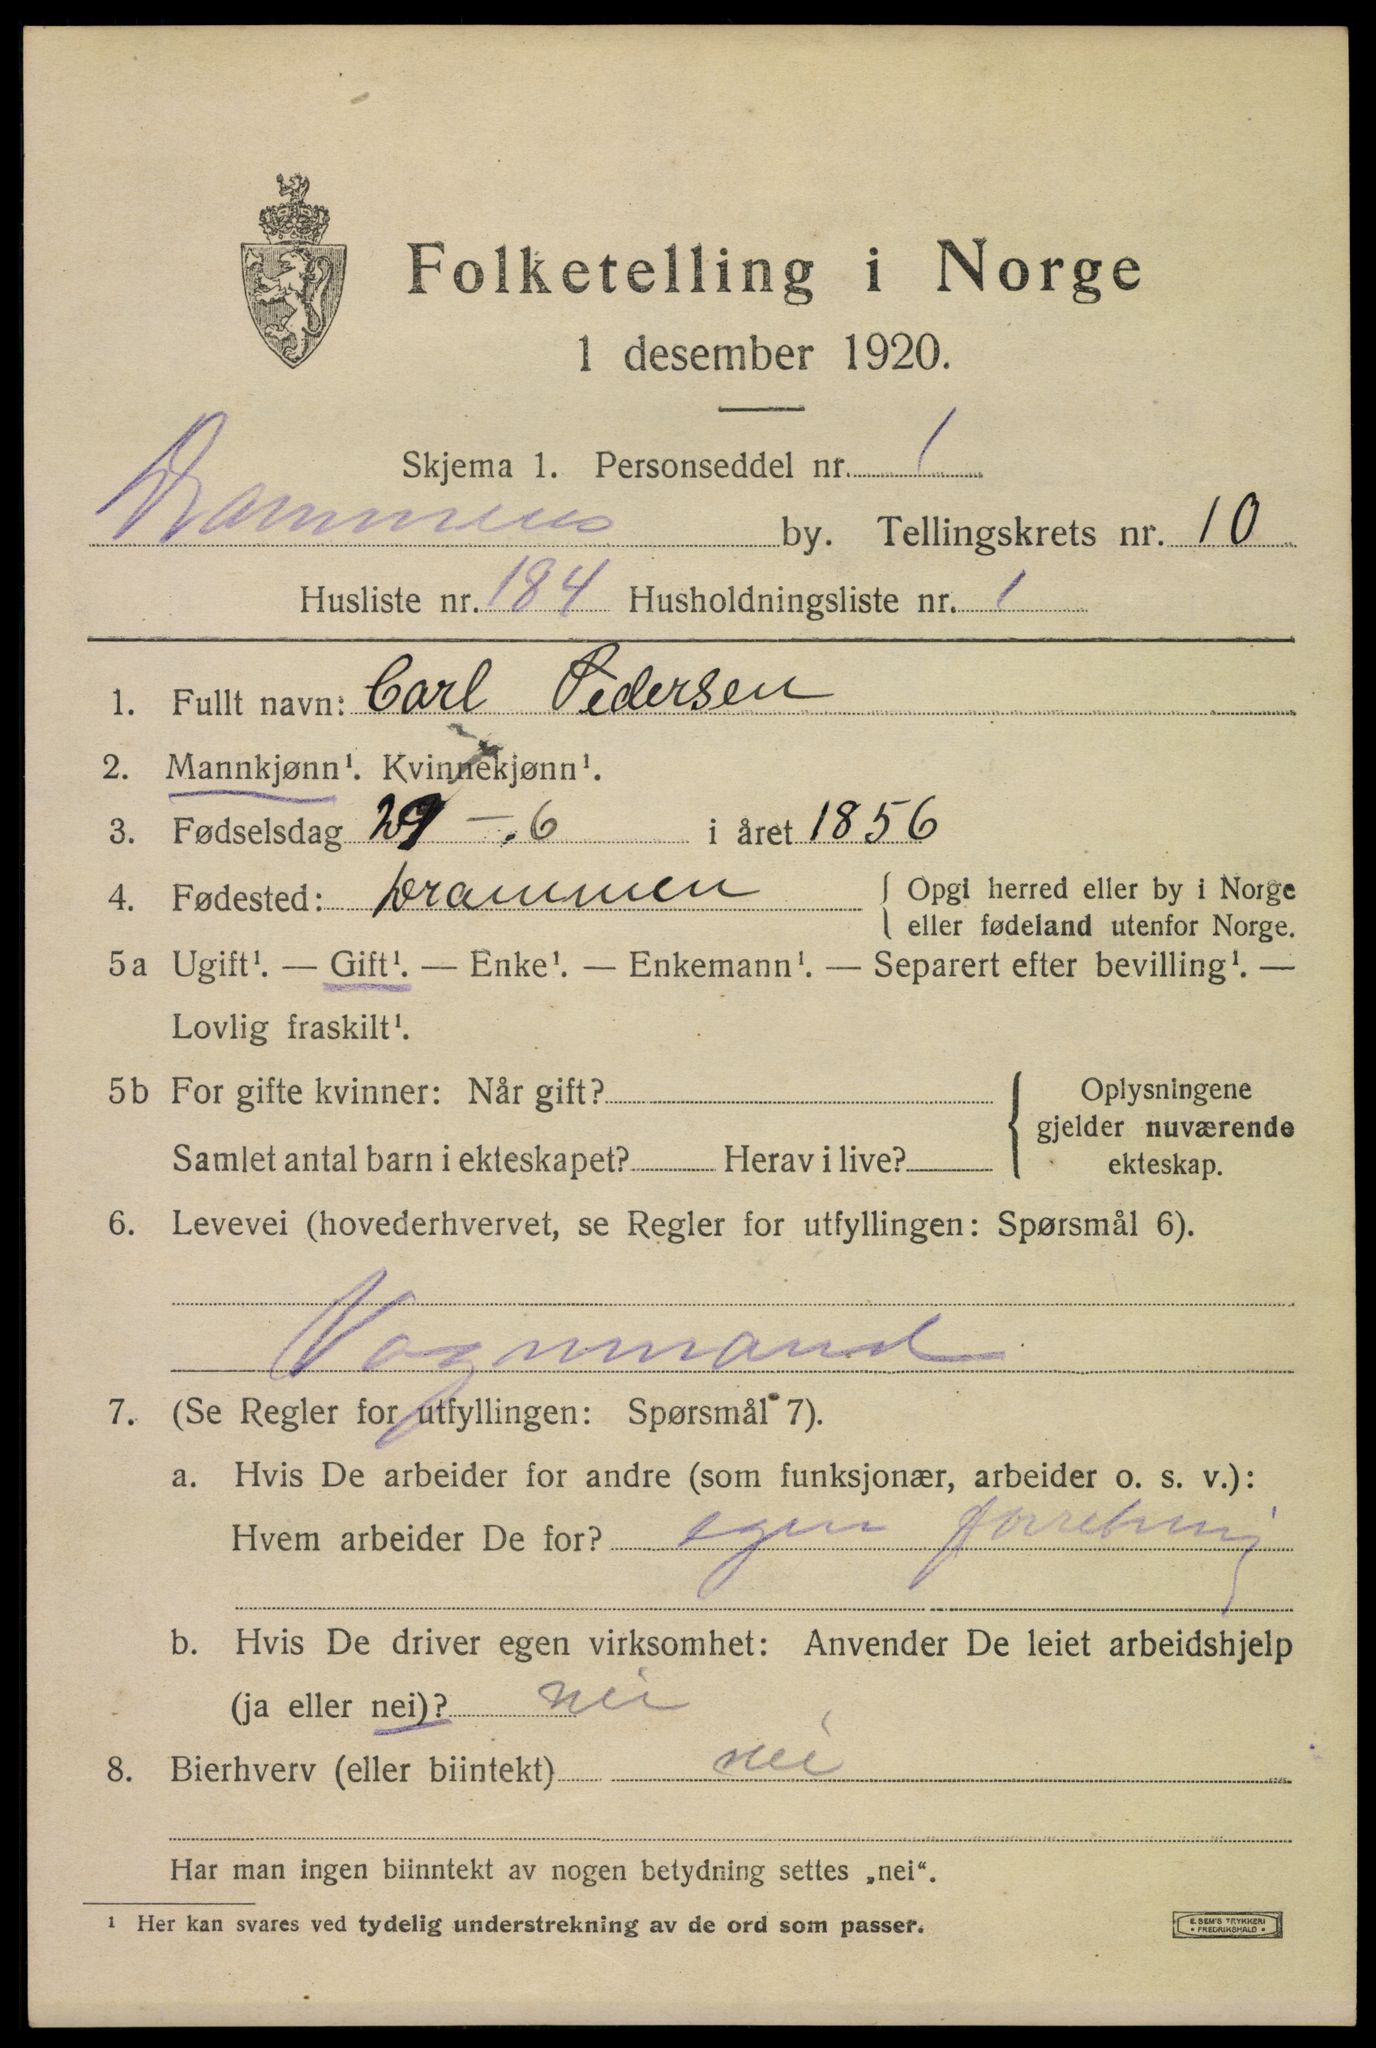 Folketelling i Norge
1 desember 1920.
Skjema 1. Personseddel nr. 1
Drammens by. Tellingskrets nr. 10
Husliste nr. 184 Husholdningsliste nr. 1
1. Fullt navn: Carl Pedersen
2. Mannkjønn¹. Kvinnekjønn¹.
3. Fødselsdag 29 – 6 i året 1856
4. Fødested: Drammen { Opgi herred eller by i Norge
eller fødeland utenfor Norge.
5a Ugift¹. — Gift¹. — Enke¹. — Enkemann¹. — Separert efter bevilling¹. —
Lovlig fraskilt¹.
5b For gifte kvinner: Når gift? { Oplysningene
gjelder nuværende
Samlet antal barn i ekteskapet? Herav i live? ekteskap.
6. Levevei (hovederhvervet, se Regler for utfyllingen: Spørsmål 6).
Vognmand
7. (Se Regler for utfyllingen: Spørsmål 7).
a. Hvis De arbeider for andre (som funksjonær, arbeider o. s. v.):
Hvem arbeider De for? egen forretning
b. Hvis De driver egen virksomhet: Anvender De leiet arbeidshjelp
(ja eller nei)? nei
8. Bierhverv (eller biintekt) nei
Har man ingen biinntekt av nogen betydning settes „nei“.
¹ Her kan svares ved tydelig understrekning av de ord som passer.
E. SEM'S TRYKKERI
• FREDRIKSHALD •